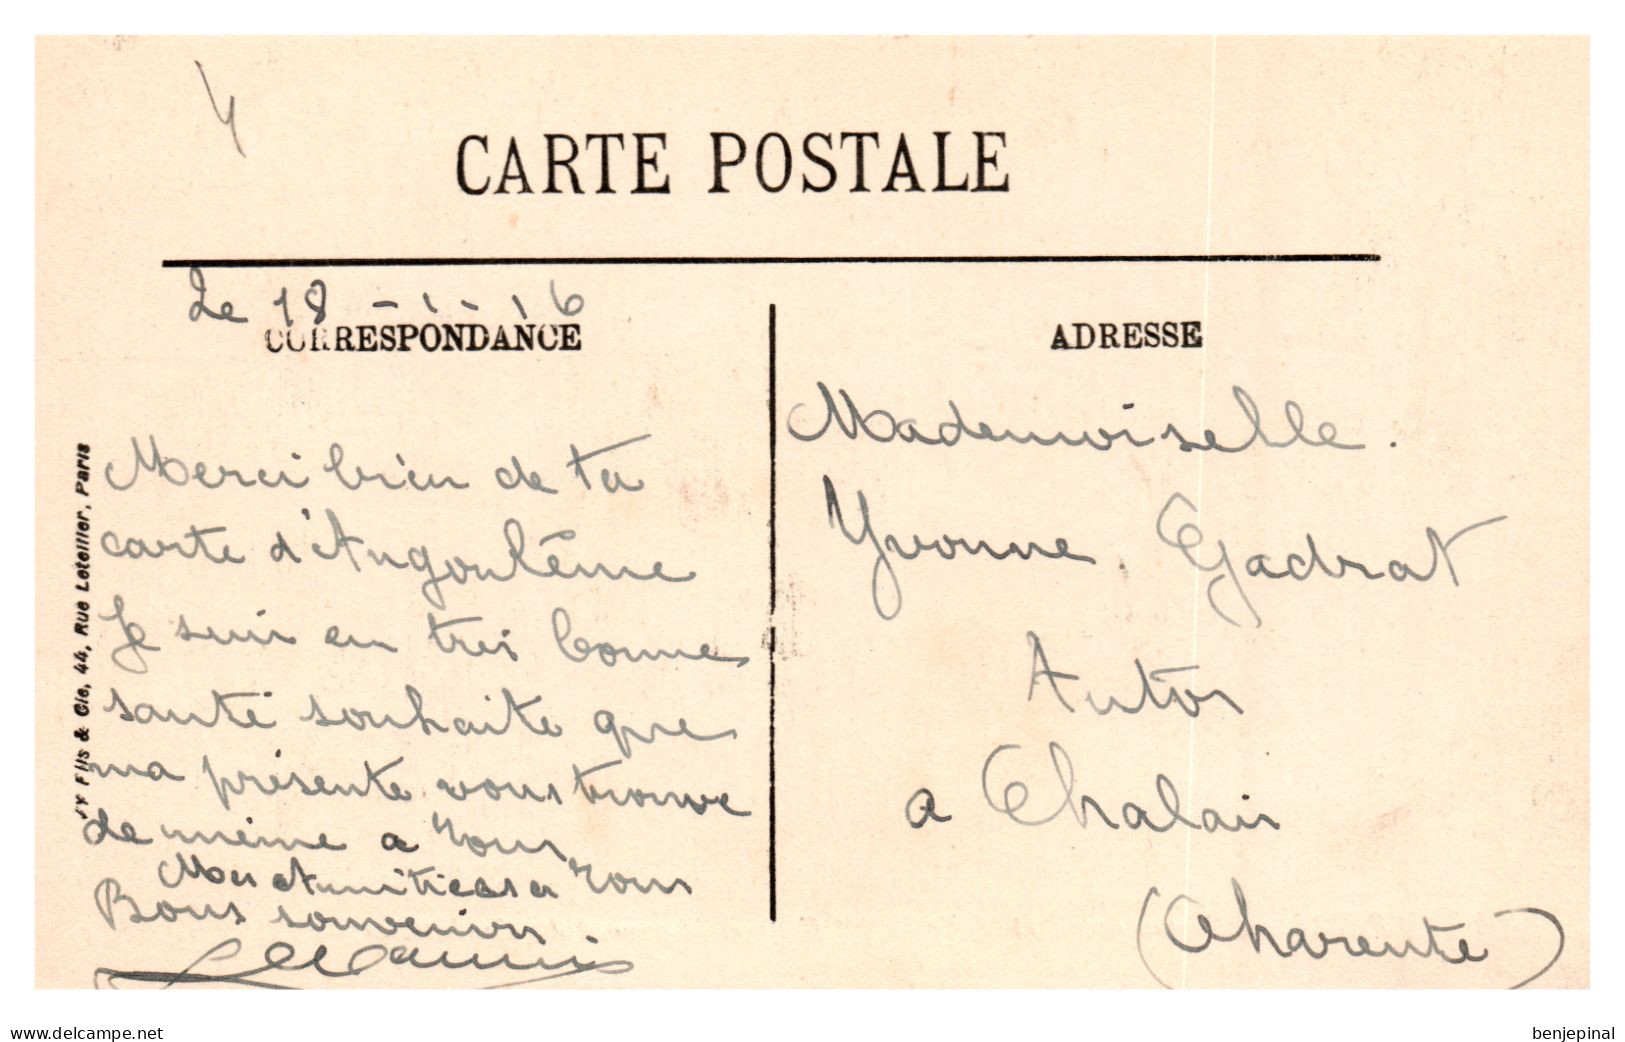 4
CARTE POSTALE
Le 18 - 1 - 16
CORRESPONDANCE
Merci bien de ta
carte d'Angoulême
Je suis en très bonne
santé souhaite que
ma présente vous trouve
de même a tous
Mes Amitiées a tous
Bons souvenirs
ADRESSE
Mademoiselle.
Yvonne Gadrat
a Chalais
(Charente)
Fils & Cie, 44, Rue Letellier, Paris
delcampe.net
benjepinal